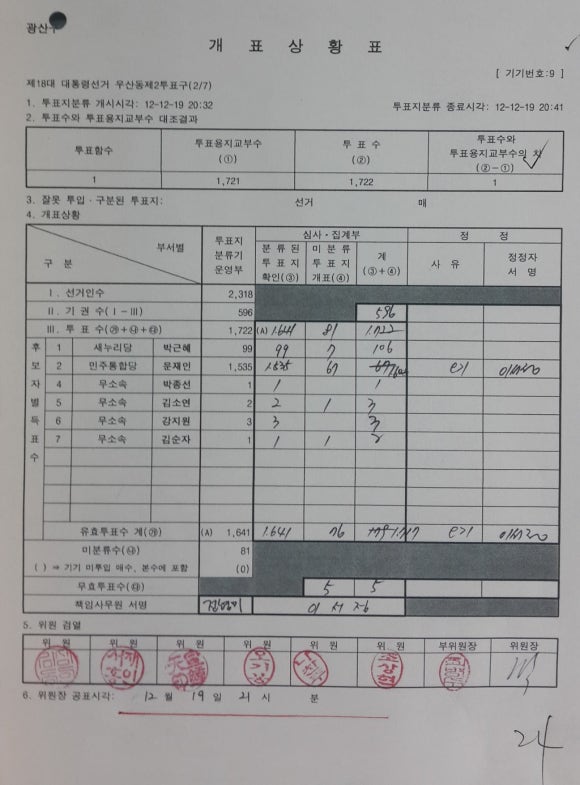 광산구
개 표 상 황 표
[ 기기번호:9 ]
제18대 대통령선거 우산동제2투표구(2/7)
1. 투표지분류 개시시각: 12-12-19 20:32 투표지분류 종료시각: 12-12-19 20:41
2. 투표수와 투표용지교부수 대조결과
투표함수 투표용지교부수 (①) 투 표 수 (②) 투표수와 투표용지교부수의 차 (②-①)
1 1,721 1,722 1
3. 잘못 투입·구분된 투표지: 선거 매
4. 개표상황
구 분 부서별 투표지 분류기 운영부 심사·집계부 정 정
분 류 된 투 표 지 확인(③) 미 분 류 투 표 지 개표(④) 계 (③+④) 사 유 정정자 서 명
Ⅰ. 선거인수 2,318
Ⅱ. 기 권 수(Ⅰ-Ⅲ) 596 596
Ⅲ. 투 표 수(㉮+㉯+㉰) 1,722 (A) 1.641 81 1722
후보자별득표수
1 새누리당 박근혜 99 99 7 106
2 민주통합당 문재인 1,535 1.535 67
4 무소속 박종선 1 1 1
5 무소속 김소연 2 2 1 3
6 무소속 강지원 3 3 3
7 무소속 김순자 1 1 1 2
유효투표수 계(㉮) (A) 1,641 1.641 76
미분류수(㉯) 81
( ) ⇒ 기기 미투입 매수, 본수에 포함 (0)
무효투표수(㉰) 5 5
책임사무원 서명
5. 위원 검열
위 원 위 원 위 원 위 원 위 원 위 원 부위원장 위원장
6. 위원장 공표시각: 12 월 19 일 21 시 분
24